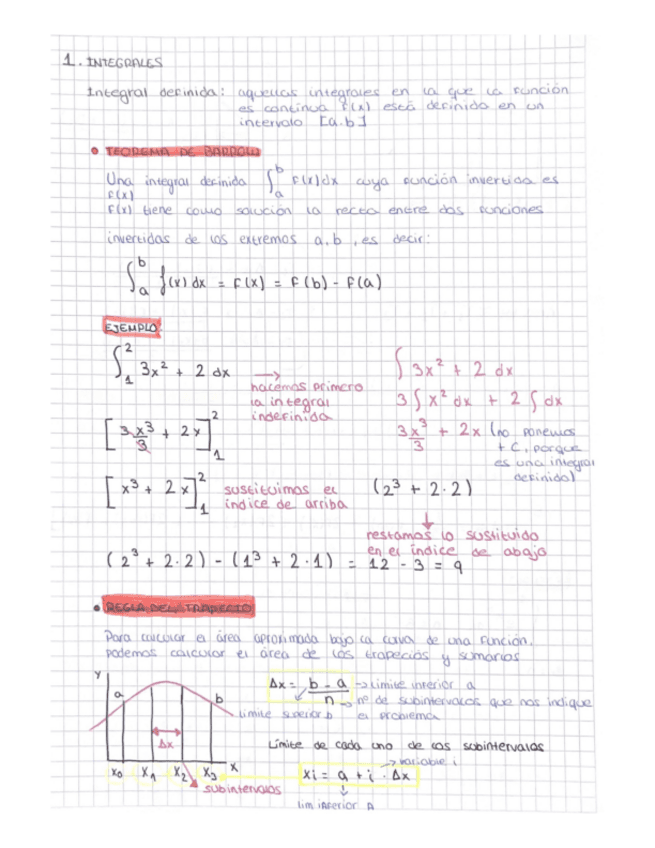 1. INTEGRALES
Integral definida: aquellas integrales en la que la función
es continua f(x) está definida en un
intervalo [a.b]
• TEOREMA DE BARROW
Una integral definida ∫_a^b f(x)dx cuya función invertida es
F(x)
F(x) tiene como solución la recta entre dos funciones
invertidas de los extremos a,b, es decir:
∫_a^b f(x) dx = F(x) = F(b) - F(a)
EJEMPLO
∫_1^2 3x² + 2 dx → hacemos primero la integral indefinida
∫ 3x² + 2 dx
3 ∫ x² dx + 2 ∫ dx
3x³/3 + 2x (no ponemos + C, porque es una integral definida)
[3x³/3 + 2x]_1^2
[x³ + 2x]_1^2 sustituimos el índice de arriba (2³ + 2·2)
↓
restamos lo sustituido
en el índice de abajo
(2³ + 2·2) - (1³ + 2·1) = 12 - 3 = 9
• REGLA DEL TRAPECIO
Para calcular el área aproximada bajo la curva de una función,
podemos calcular el área de los trapecios y sumarlos
Y
a
b
Δx
x₀ x₁ x₂ x₃ X
subintervalos
Δx = b - a / n
→ Límite inferior a
→ nº de subintervalos que nos indique
el problema
Límite superior b
Límite de cada uno de los subintervalos
→ variable i
xi = a + i · Δx
↓
lim inferior A